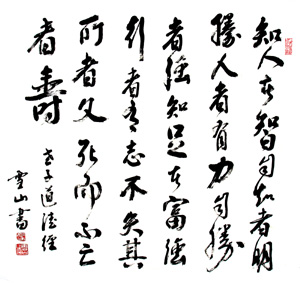 知人者智自知者明
勝人者有力自勝
者強知足者富強
行者有志不失其
所者久死而不亡
者壽
老子道德經
山書